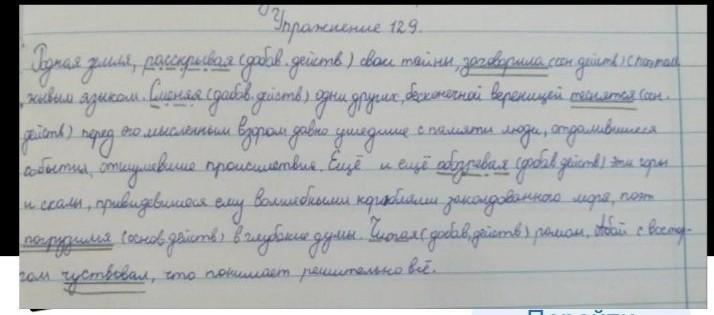 Упражнение 129.
Родная земля, расскрывая (добав. действ.) свои тайны, заговорила (осн действ) с поэтом
живым языком. Сменяя (добав. действ) одни других, бесконечной вереницей теснятся (осн.
действ) перед его мысленным взором давно ушедшие с памяти люди, отдалившиеся
события, отшумевшие происшествия. Ещё и ещё обозревая (добав действ) эти горы
и скалы, привидевшиеся ему волшебными кораблями заколдованного моря, поэт
погрузился (основ. действ) в глубокие думы. Читая (добав. действ) роман, Абай с востор-
гом чуствовал, что понимает решительно всё.
Перейти